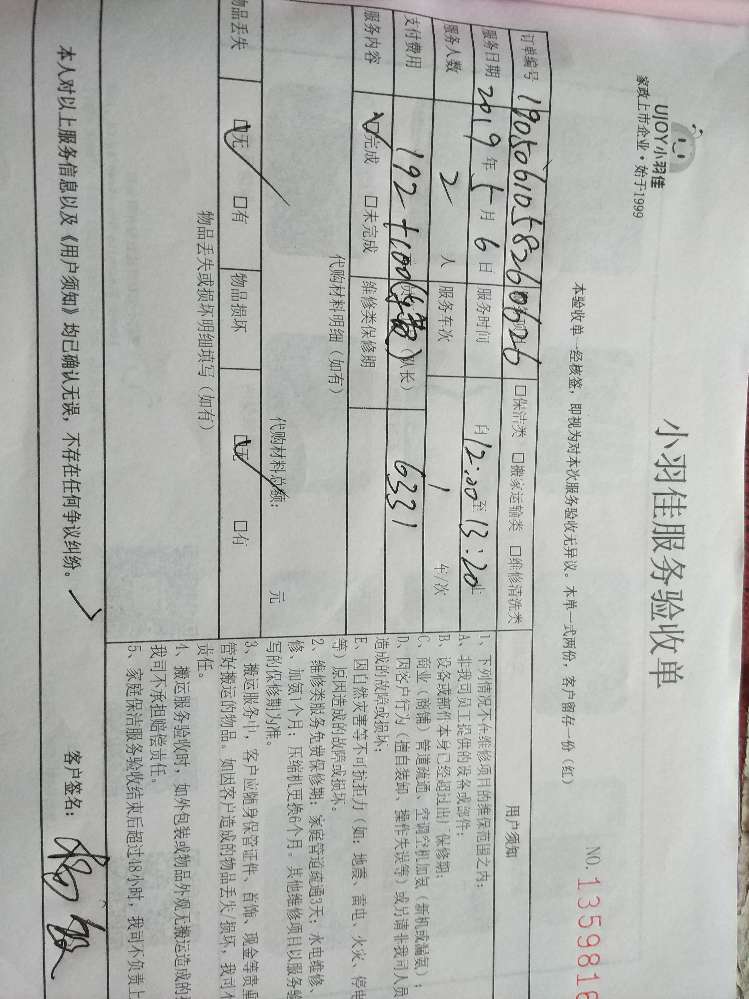 UJOY小羽佳
家政上市企业·始于1999
小羽佳服务验收单
本验收单一经核签，即视为对本次服务验收无异议。本单一式两份，客户留存一份（红）
NO.1359816
订单编号 1905061058260626 □保洁类 □搬家运输类 □维修清洗类
服务日期 2019年5月6日 服务时间 自12:00至13:20
服务人数 2人 服务车次 1 车/次
支付费用 192+100(车费) （队长） 6331
服务内容 ☑完成 □未完成 维修类保修期
代购材料明细（如有）
代购材料总额： 元
物品丢失 ☑无 □有 物品损坏 ☑无 □有
物品丢失或损坏明细填写（如有）
用户须知
1、下列情况不在维修项目的维保范围之内：
A、非我司员工提供的设备或部件；
B、设备或部件本身已经超过出厂保修期；
C、商业（商铺）管道疏通、空调空机加氨（新机或漏氨）；
D、因客户行为（擅自装卸、操作失误等）或另请非我司人员
造成的故障或损坏；
E、因自然灾害等不可抗拒力（如：地震、雷电、火灾、停电
等）原因造成的故障或损坏。
2、维修类服务免费保修期：家庭管道疏通3天；水电维修、
修、加氨1个月；压缩机更换6个月。其他维修项目以服务验
写的保修期为准。
3、搬运服务中，客户应随身保管证件、首饰、现金等贵重
管好搬运的物品。如因客户造成的物品丢失/损坏，我司不
责任。
4、搬运服务验收时，如外包装或物品外观无搬运造成的
我司不承担赔偿责任。
5、家庭保洁服务验收结束后超过48小时，我司不负责上
本人对以上服务信息以及《用户须知》均已确认无误，不存在任何争议纠纷。 客户签名：